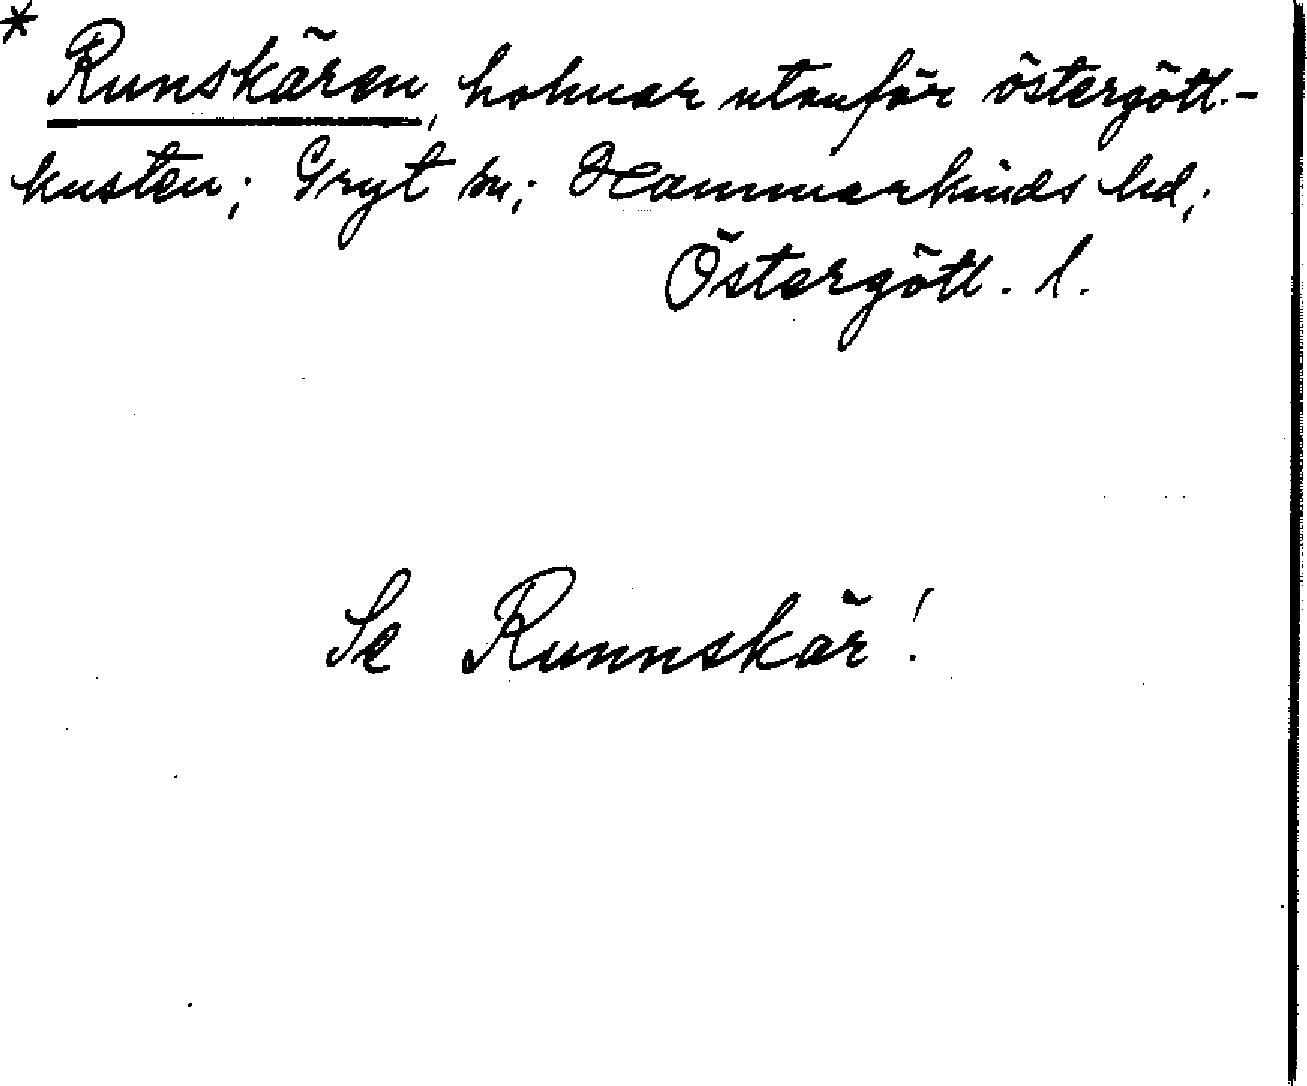 * Runskären, holmar utanför östergötl.-
kusten; Gryt sn; Hammarkinds hd;
Östergötl. l.
Se Runnskär!